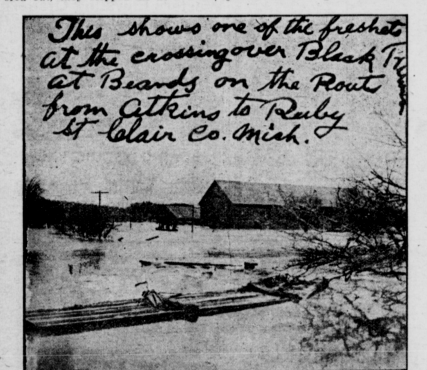 This shows one of the freshets
at the crossing over Black River
at Beards on the Route
from Atkins to Ruby
St Clair Co. Mich.